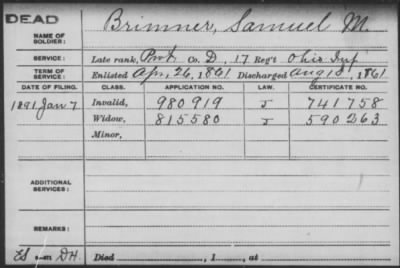 DEAD
NAME OF SOLDIER: Brimner, Samuel M.
SERVICE: Late rank, Pvt. Co. D, 17 Reg't Ohio Inf
TERM OF SERVICE: Enlisted Apr. 26, 1861 Discharged Aug 18, 1861
DATE OF FILING. CLASS. APPLICATION NO. LAW. CERTIFICATE NO.
1891 Jan 7 Invalid, 980919 J 741758
Widow, 815580 J 590263
Minor,
ADDITIONAL SERVICES:
REMARKS:
DH. Died , 1 , at